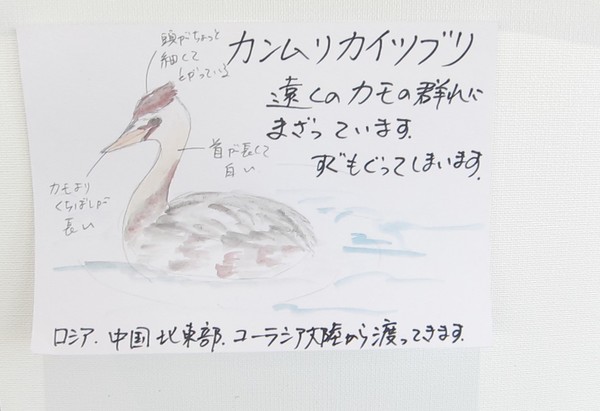 カンムリカイツブリ
遠くのカモの群れに
まざっています.
すぐもぐってしまいます.
頭がちょっと
細くて
とがっている
首が長くて
白い
カモより
くちばしが
長い
ロシア.中国北東部.ユーラシア大陸から渡ってきます.